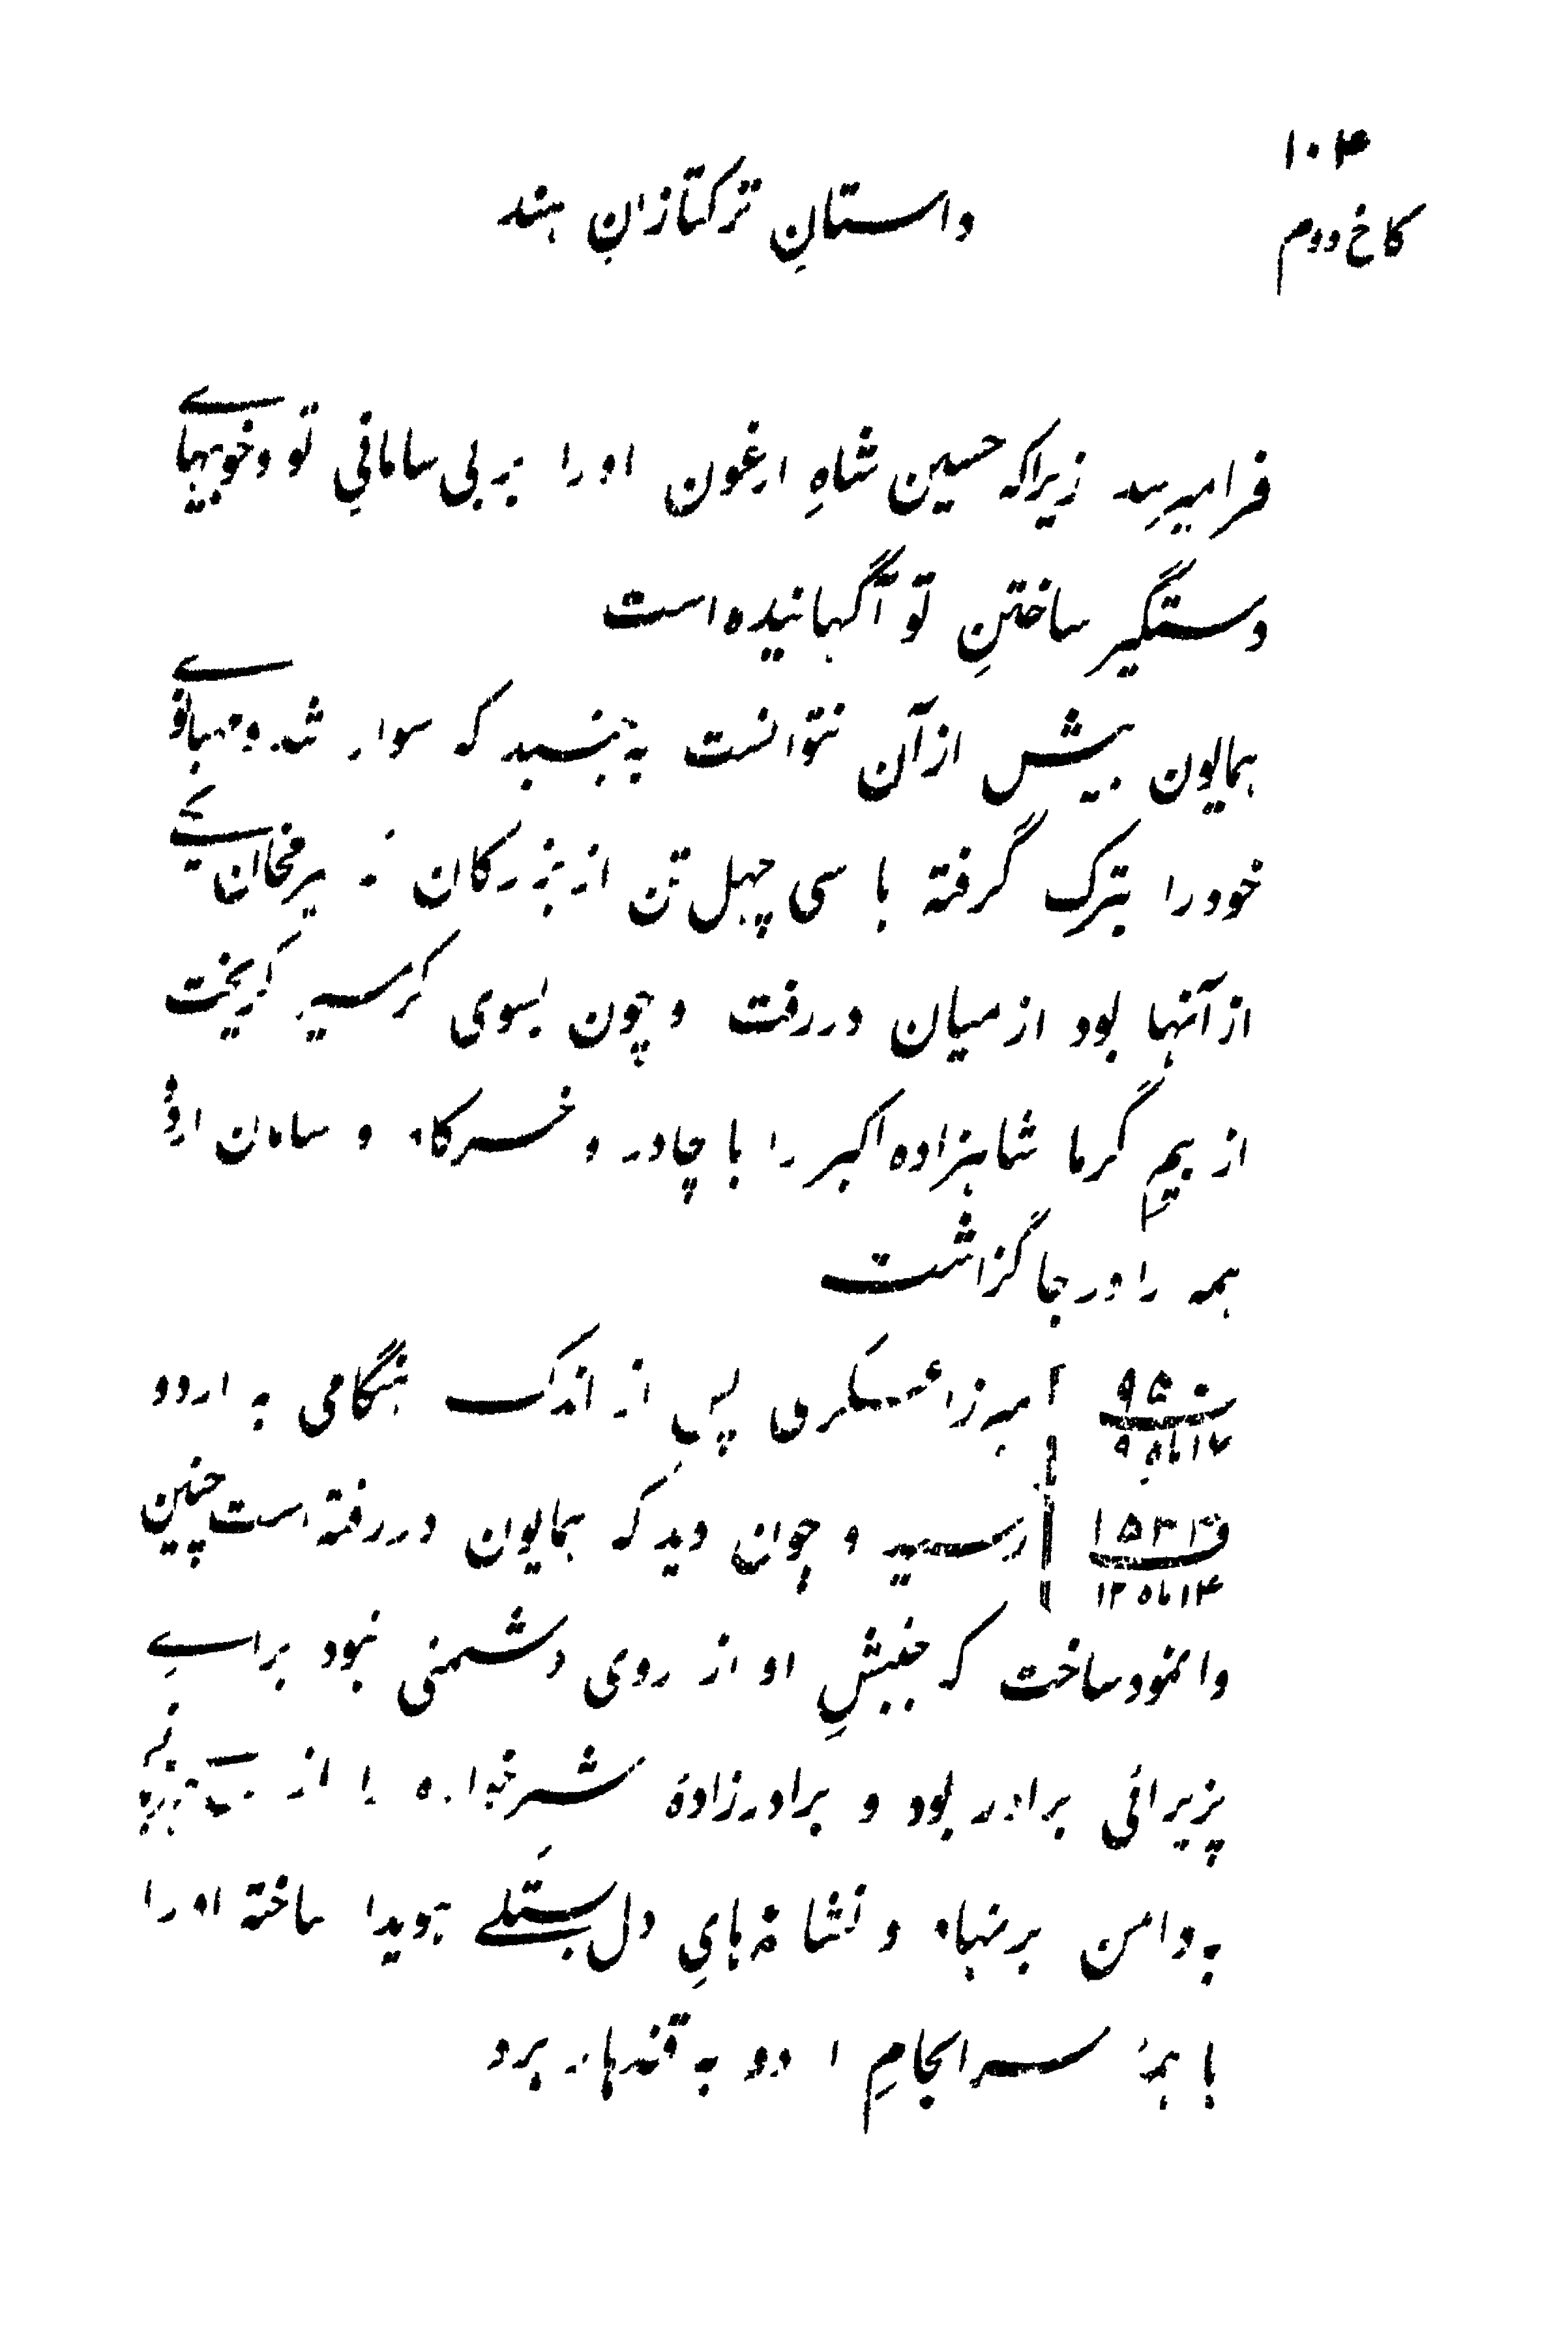 ۱۰۴
کاخ دوم
داستانِ ترکتازانِ هند
فرا میرسد زیرا که حسین شاهِ ارغون اورا بر بی سامانیِ تو و خوبیهای
دستگیر ساختنِ تو آگهانیده است
همایون بیش از آن نتوانست به جنبید که سوار شد و مهبانوی
خود را بترک گرفته با سی چهل تن از بزرگان که بیرمخان یکی
از آنها بود از میان در رفت و چون بسوی گرمسیر گریخت
از بیمِ گرما شاهزاده اکبر را با چادر و خرگاه و سامان اردو
همه را در جا گزاشت
میرزا عسکری پس از اندک هنگامی به اردو
رسید و چون دید که همایون در رفته است چنین
وانمود ساخت که جنبشِ او از روی دشمنی نبود برای
پزیرائی برادر بود و برادرزادهٔ شیرخواره را از
به دامن برنهاد و نشانه‌هایِ دل بستگی هویدا ساخته اورا
با همهٔ سرانجامِ اردو به قندهار برد